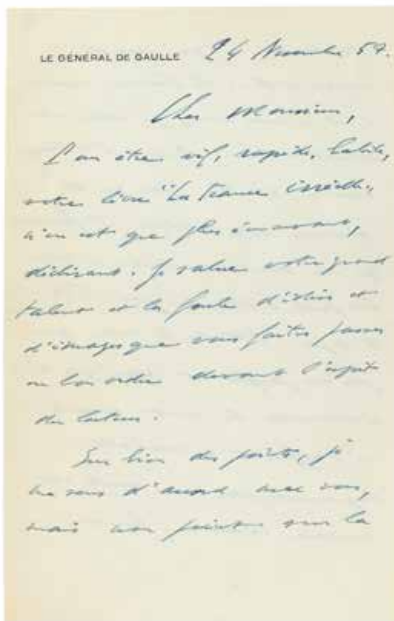 LE GÉNÉRAL DE GAULLE 24 Novembre 57.
Cher Monsieur,
Pour être vif, rapide, habile,
votre livre "La France irréelle",
n'en est que plus émouvant,
déchirant. Je salue votre grand
talent et la foule d'idées et
d'images que vous faites passer
en bon ordre devant l'esprit
du lecteur.
Sur bien des points, je
me sens d'accord avec vous,
mais non point sur la